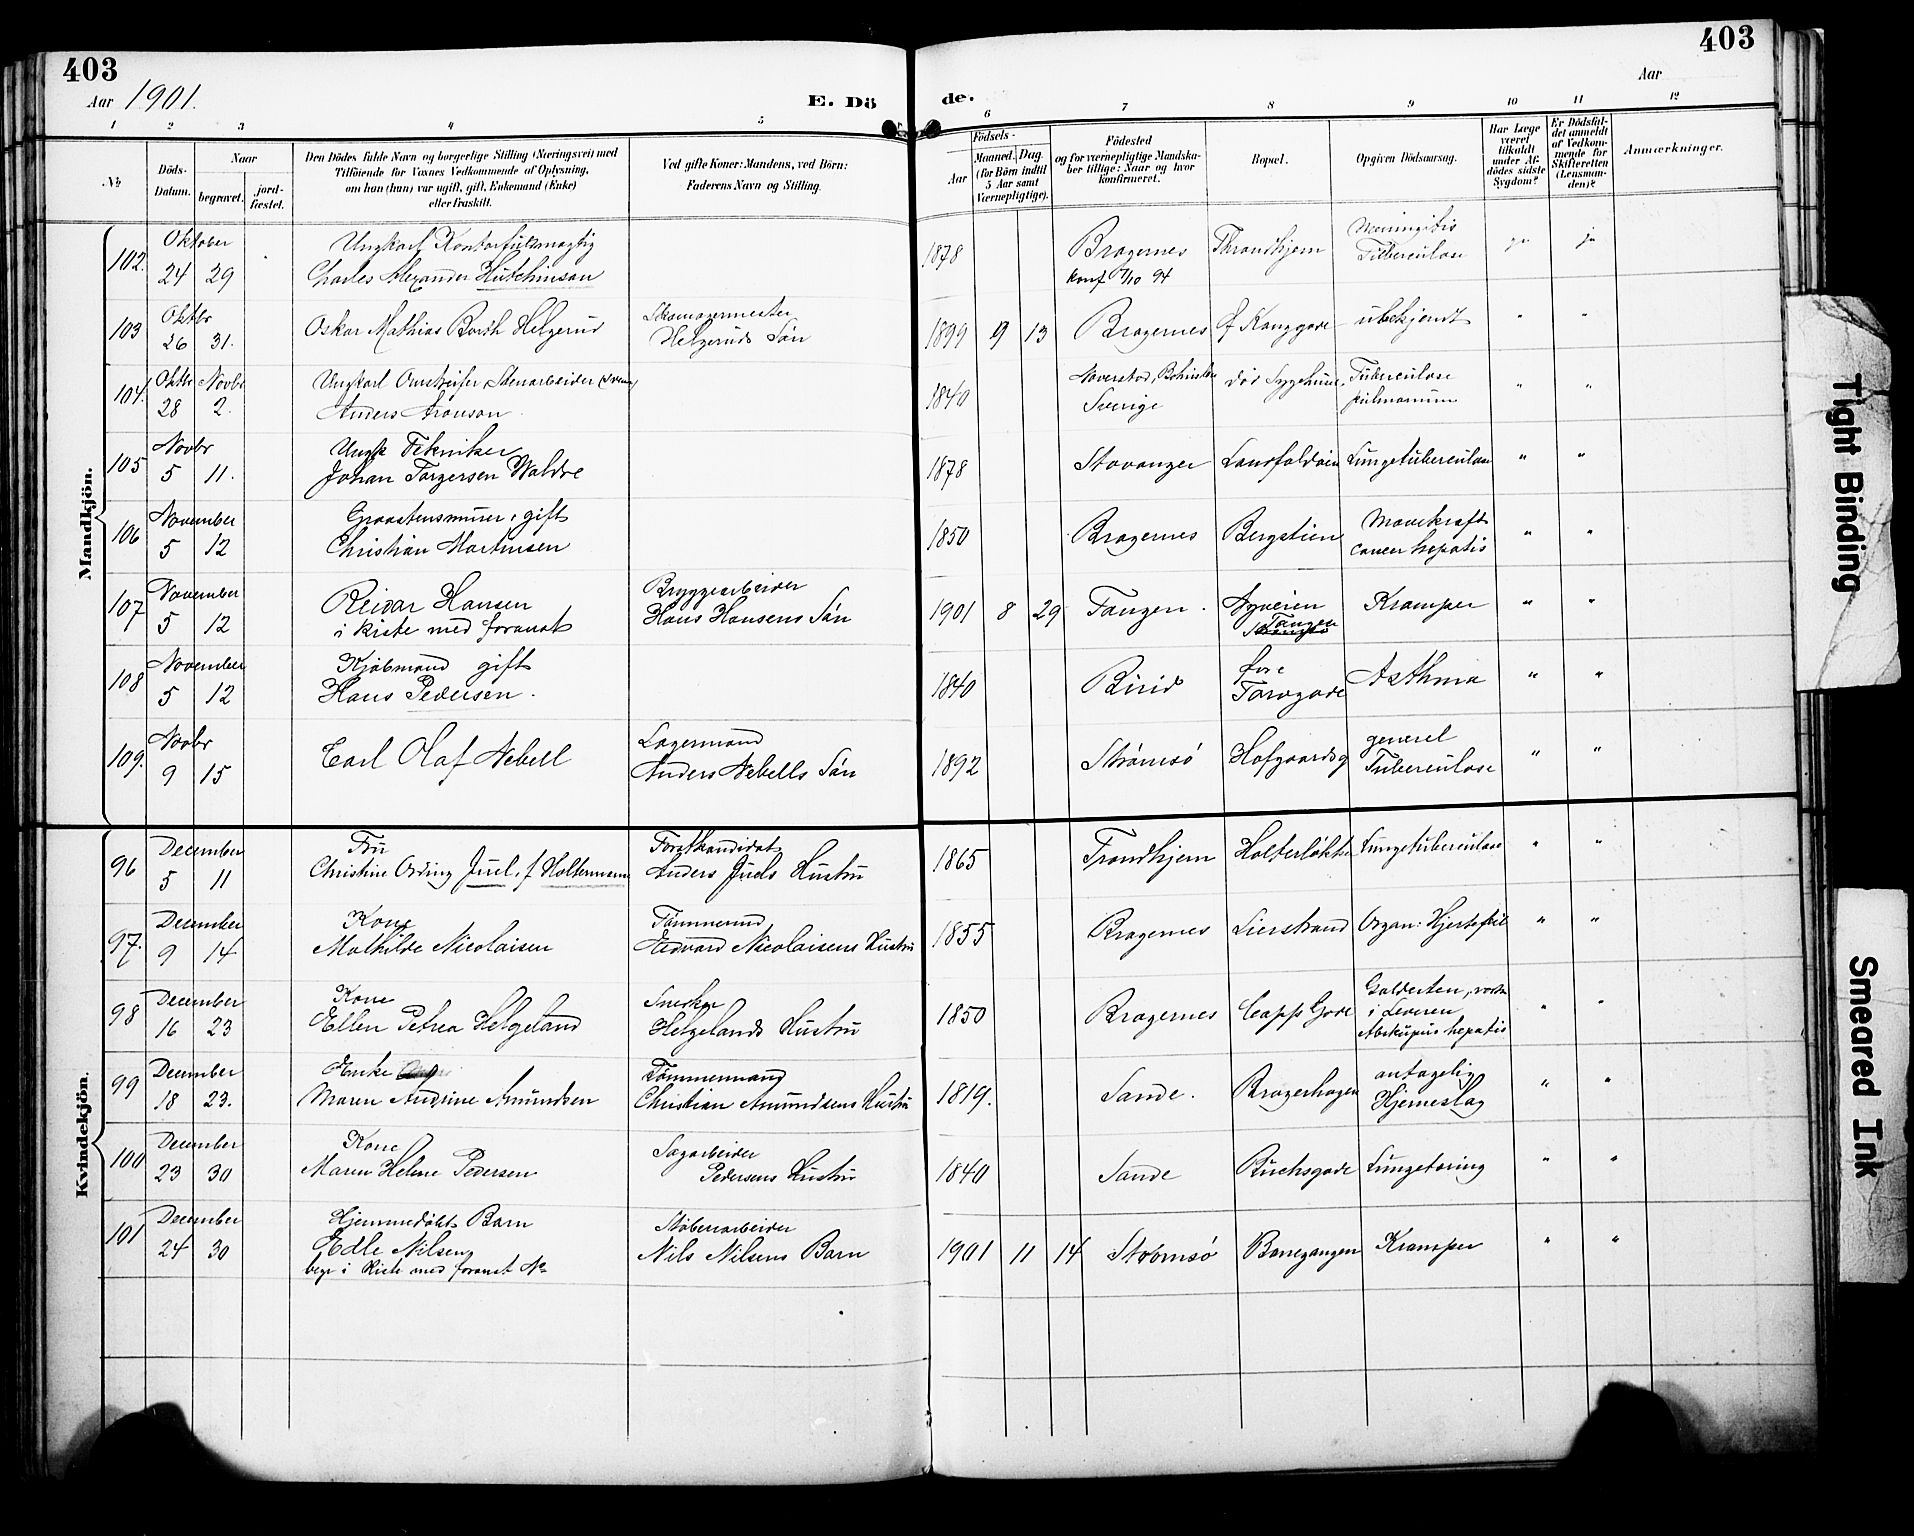 403
403
Aar 1901.
E. Dö
de.
Aar
1 2 3 4 5 6 7 8 9 10 11 12
No
Döds-
Datum.
Naar
begravet.
jord-
fæstet.
Den Dödes fulde Navn og borgerlige Stilling (Næringsvei) med
Tilföiende for Voxnes Vedkommende af Oplysning,
om han (hun) var ugift, gift, Enkemand (Enke)
eller fraskilt.
Ved gifte Koner: Mandens, ved Börn:
Faderens Navn og Stilling.
Födsels-
Aar
Maaned. Dag
(for Börn indtil
5 Aar samt
Værnepligtige).
Födested
og for værnepligtige Mandska-
ber tillige: Naar og hvor
konfirmeret.
Bopæl.
Opgiven Dödsaarsag.
Har Læge
været
tilkaldt
under Af-
dödes sidste
Sygdom?
Er Dödsfal-
det anmeldt
af Vedkom-
mende for
Skifteretten
(Lensman-
den)?
Anmærkninger.
Mandkjön.
102. Oktober 24 29
Ungkarl Kontorfuldmægtig
Charles Alexander Hutchinson
1878 Bragernes
konf 7/10 94
Throndhjem
Meningitis
Tuberculose
ja ja
103 Oktbr 26 31.
Oskar Mathias Borch Helgerud
Skomagermester
Helgeruds Sön
1899 9 13 Bragernes
ubekjendt " "
104. Oktbr 28 Novbr 2.
Ungkarl Omstreifer, Stenarbeider
Anders Aronson
1840
Sverige
Sygehuse,
Tuberculose
pulmonum
" "
105 Novbr 5 11.
Ungk Tekniker
Johan Torgersen Waldre
1878 Stavanger Landfaldöien Lungetuberculose " "
106 November 5 12
Graastensmurer, gift
Christian Martinsen
1850 Bragernes Bergstien
Mavekræft
cancer hepatis
" "
107 November 5 12
Reidar Hansen
i kiste med foranst
Bryggearbeider
Hans Hansens Sön
1901 8 29 Tangen. Nyveien
Tangen
Kramper " "
108 November 5 12
Kjöbmand gift
Hans Pedersen.
1840 Birid
Övre
Torvgade
Asthma " "
109. Novbr 9 15
Carl Olaf Nebell
Lagermand
Anders Nebells Sön
1892 Strömsö Hofgaardsg
generel
Tuberculose
" "
Kvindekjön.
96 December 5 11
Fru
Christine Ording Juel, f Holtermann
Forstkandidat
Anders Juels Hustru
1865 Trondhjem Holterløkken Lungetuberculose " "
97. December 9 14
Kone
Mathilde Nicolaisen
Tömmermd
Edvard Nicolaisens Hustru
1855 Bragernes Lierstrand Organ: Hjertefeil " "
98 December 16 23
Kone
Ellen Petrea Helgeland
Snedker
Helgelands Hustru
1850 Bragernes Cappsgade
Galdesten,
i Leveren
hepatis
" "
99 December 18 23.
Enke
Maren Andrine Amundsen
Tömmermand
Christian Amundsens Hustru
1819. Sande. Bragerhagen
antagelig
Hjerneslag
" "
100 December 23 30
Kone
Maren Helene Pedersen
Sagarbeider
Pedersens Hustru
1840 Sande Buchsgade Lungetæring " "
101 December 24 30
Hjemmedöbt Barn
Edle Nilsen
begr i kiste med foranst No
Støberiarbeider
Nils Nilsens Barn
1901 11 14 Strömsö Borregangen Kramper " "
Tight Binding
Smeared Ink